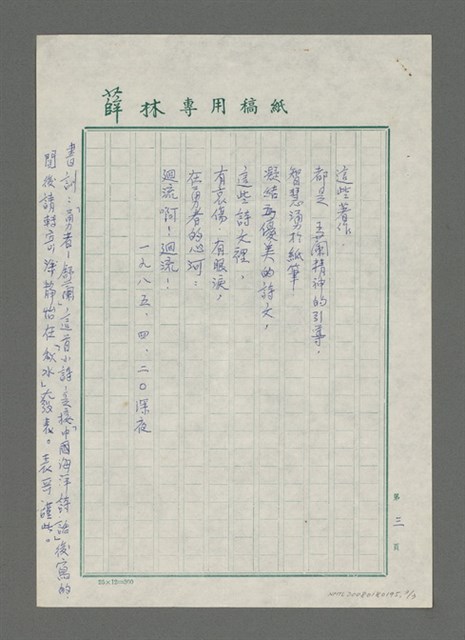 薛林專用稿紙
這些著作,
都是 玉蘭精神的引導,
智慧湧於紙筆!
凝結為優美的詩文,
這些詩文裡,
有哀傷,有眼淚,
在勇者的心河:
迴流啊!迴流!
一九八五、四、二○深夜
書訓:「勇者—舒蘭」這首小詩,是接「中國海洋詩話」後寫的,
閱後請轉寄涂靜怡在「秋水」發表。表哥謹些。
第三頁
25×12=300